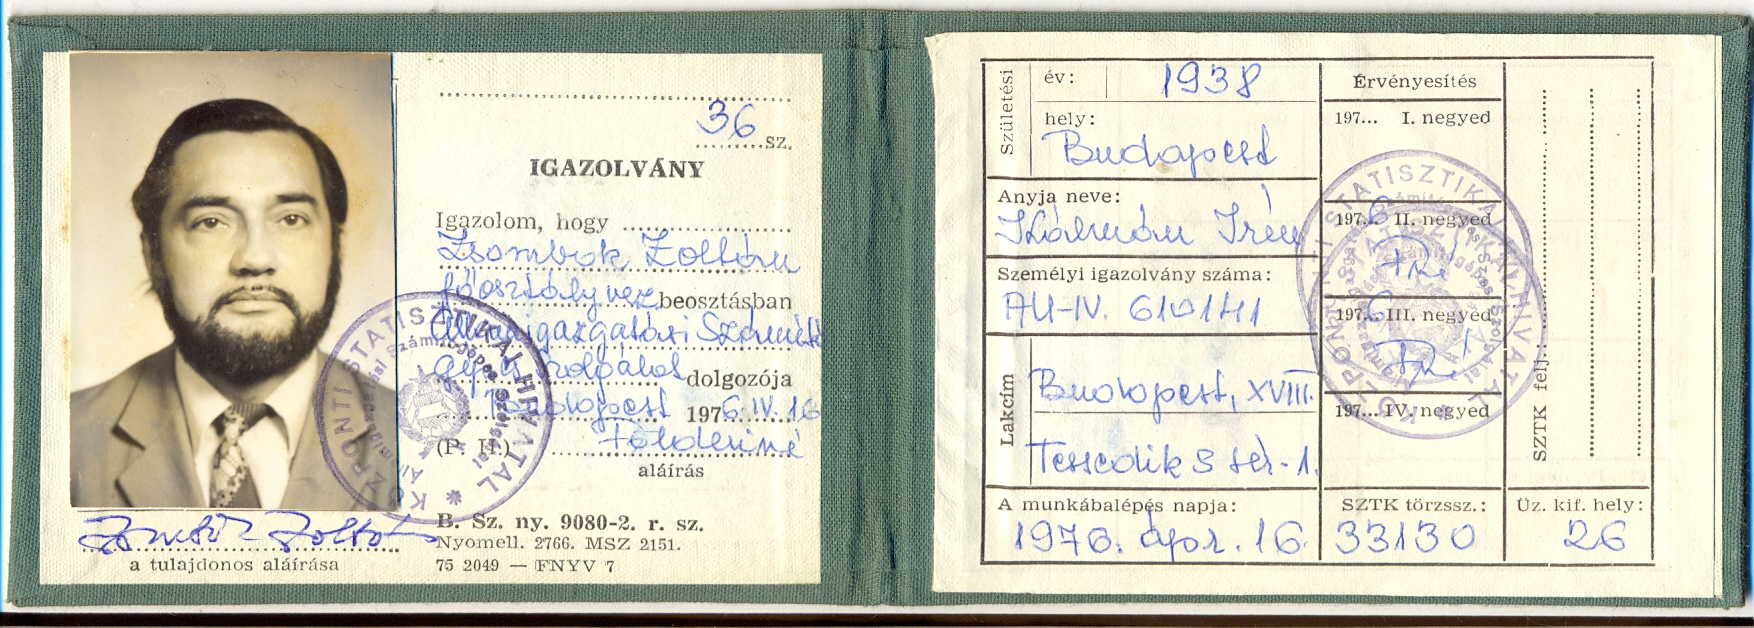 36 sz.
IGAZOLVÁNY
Igazolom, hogy
Zsombok Zoltán
főosztályvez beosztásban
Államigazgatási Számító
gépes szolgálat dolgozója
Budapest 1976. IV. 16
(P. H.) Földeriné
aláírás
B. Sz. ny. 9080-2. r. sz.
Nyomell. 2766. MSZ 2151.
75 2049 — FNYV 7
Zsombok Zoltán
a tulajdonos aláírása
KÖZPONTI STATISZTIKAI HIVATAL
Államigazgatási Számítógépes Szolgálat
Születési
év: 1938
hely:
Budapest
Anyja neve:
Kálmán Irén
Személyi igazolvány száma:
AU-IV. 610141
Lakcím
Budapest, XVIII.
Tessedik S tér. 1.
A munkábalépés napja:
1976. ápr. 16.
Érvényesítés
197... I. negyed
197.6 II. negyed
197.6 III. negyed
197... IV. negyed
KÖZPONTI STATISZTIKAI HIVATAL
SZTK törzssz.:
33130
SZTK felj.:
Üz. kif. hely:
26